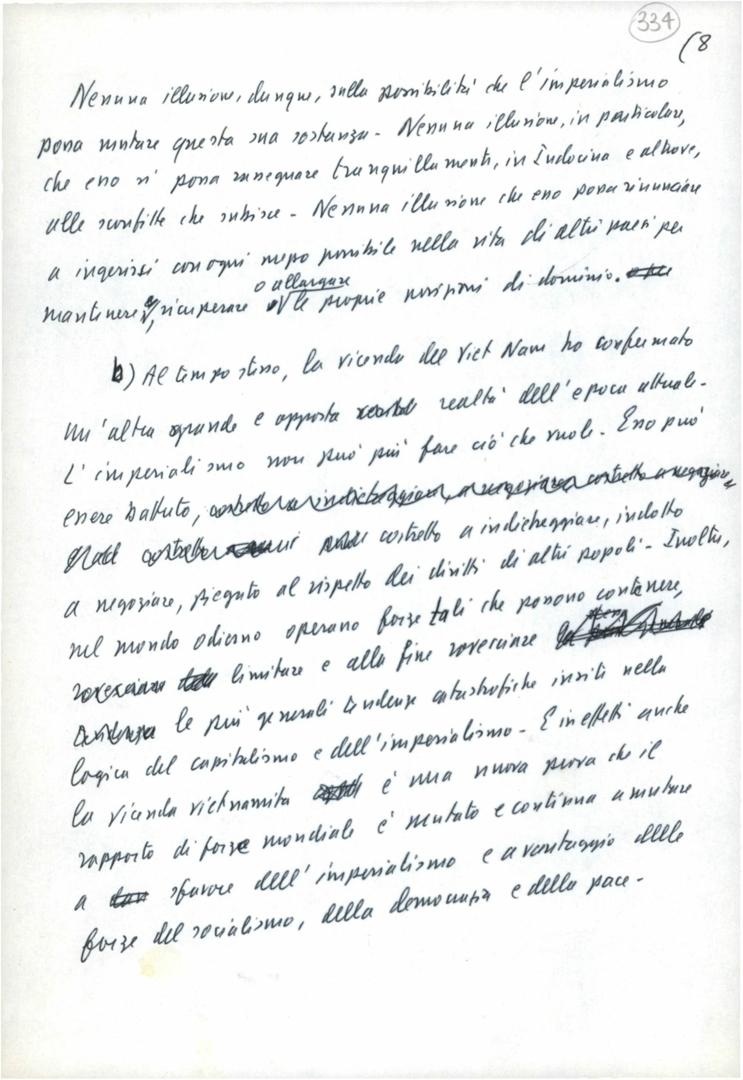 334
(8
Nessuna illusione, dunque, sulla possibilità che l'imperialismo
possa mutare questa sua sostanza - Nessuna illusione, in particolare,
che esso si possa rassegnare tranquillamente, in Indocina e altrove,
alle sconfitte che subisce - Nessuna illusione che esso possa rinunciare
a ingerirsi con ogni mezzo possibile nella vita di altri paesi per
o allargare
mantenere, ricuperare le proprie posizioni di dominio.
b) Al tempo stesso, la vicenda del Viet Nam ha confermato
un'altra grande e opposta realtà dell'epoca attuale -
L'imperialismo non può più fare ciò che vuole - Esso può
essere battuto, costretto a indietreggiare, a negoziare, costretto a negoziare,
costretto costretto a indietreggiare, indotto
a negoziare, piegato al rispetto dei diritti di altri popoli - Inoltre,
nel mondo odierno operano forze tali che possono contenere,
rovesciare limitare e alla fine rovesciare la
tendenza le più generali tendenze catastrofiche insiti nella
logica del capitalismo e dell'imperialismo - E in effetti anche
la vicenda vietnamita è una nuova prova che il
rapporto di forze mondiale è mutato e continua a mutare
a sfavore dell'imperialismo e a vantaggio delle
forze del socialismo, della democrazia e della pace -